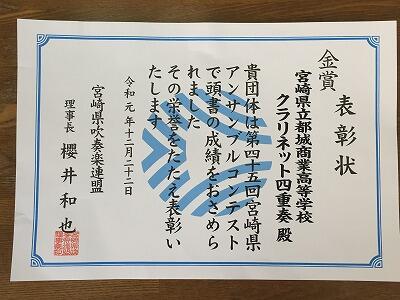 表彰状
金賞
宮崎県立都城商業高等学校
クラリネット四重奏 殿
貴団体は第四十五回宮崎県
アンサンブルコンテスト
で頭書の成績をおさめら
れました
その栄誉をたたえ表彰い
たします
令和元年十二月二十二日
宮崎県吹奏楽連盟
理事長 櫻井和也